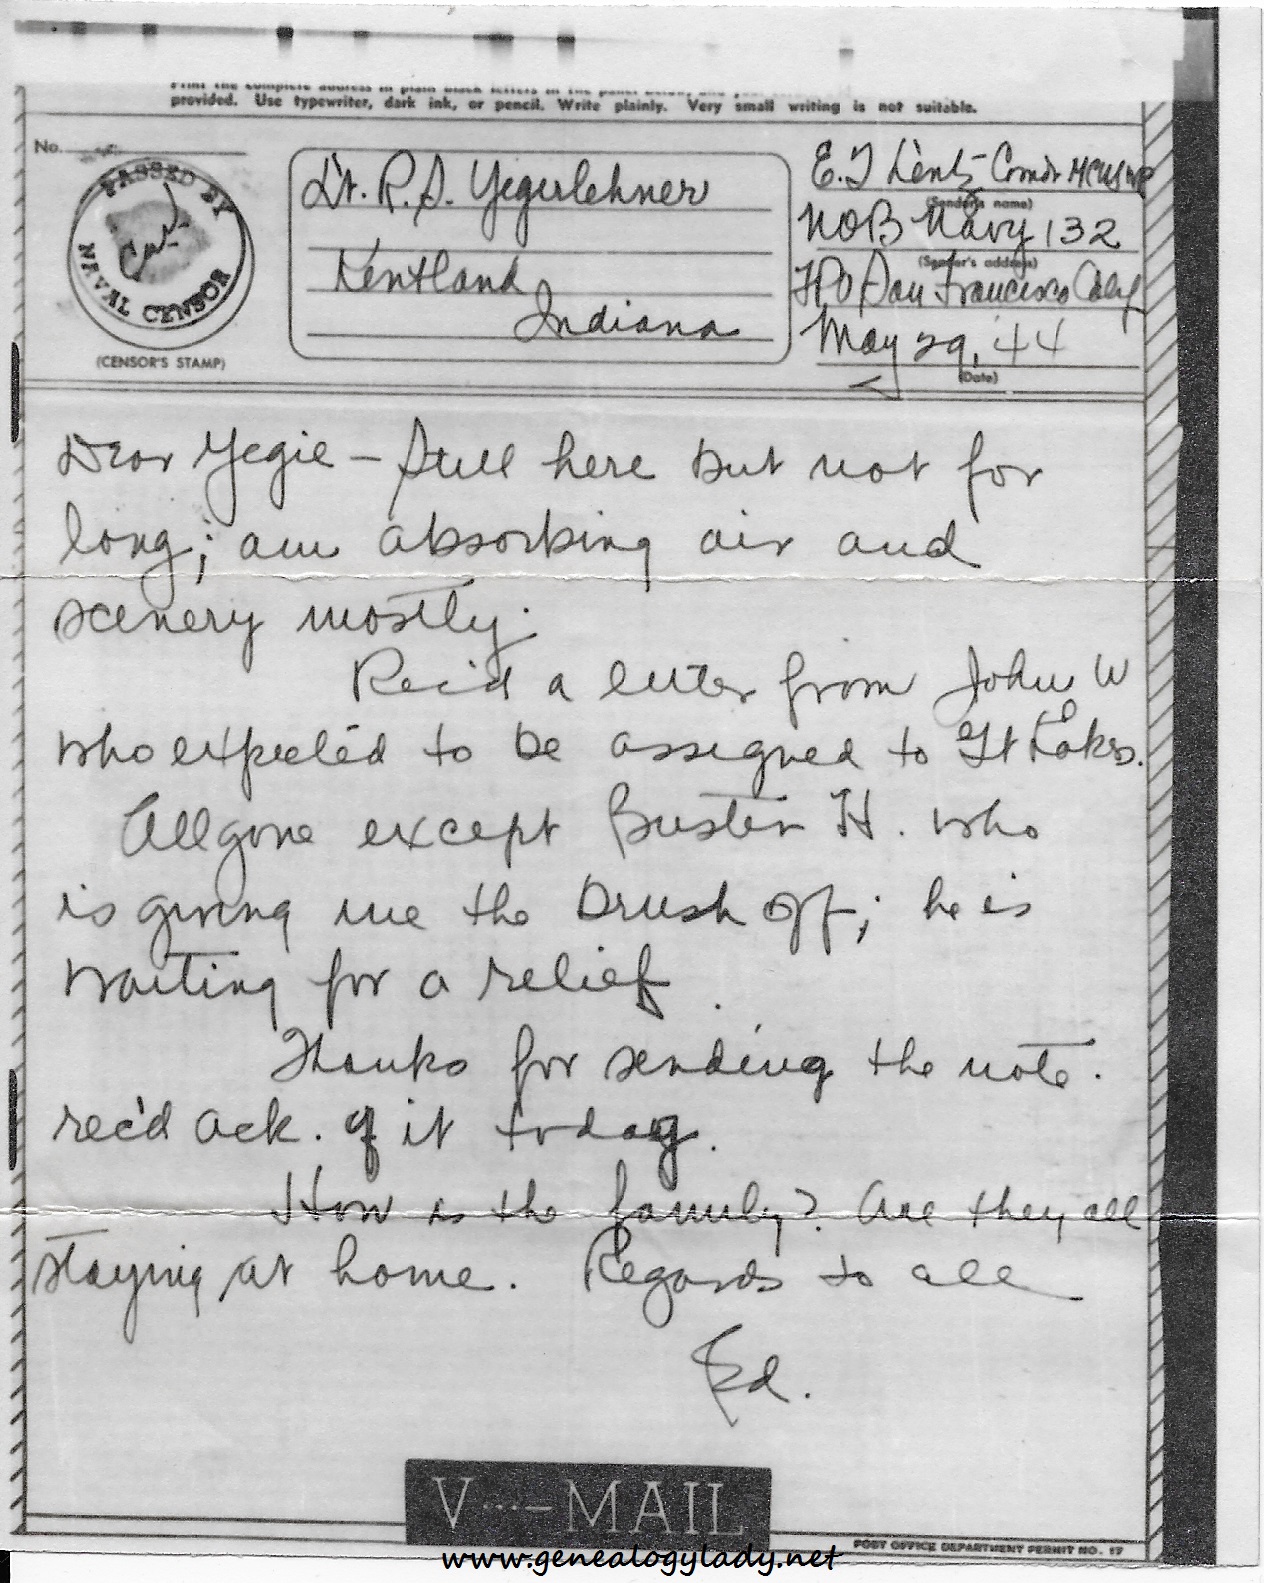 Print the complete address in plain black letters in the panel below, and your
provided. Use typewriter, dark ink, or pencil. Write plainly. Very small writing is not suitable.
No.
PASSED BY
NAVAL CENSOR
(CENSOR'S STAMP)
Lt. R. S. Yegerlehner
Kentland
Indiana
E. T Lentz Comdr MC USNR
(Sender's name)
NOB Navy 132
(Sender's address)
FPO San Francisco Calif
May 29, 44
(Date)
Dear Yegie – Still here but not for
long; am absorbing air and
scenery mostly.
Rec'd a letter from John W
who expected to be assigned to Gt Lakes.
All gone except Buster H. who
is giving me the brush off; he is
waiting for a relief.
Thanks for sending the note.
rec'd ack. of it today.
How is the family? Are they all
staying at home. Regards to all
Ed.
V ···— MAIL
POST OFFICE DEPARTMENT PERMIT NO. 17
www.genealogylady.net